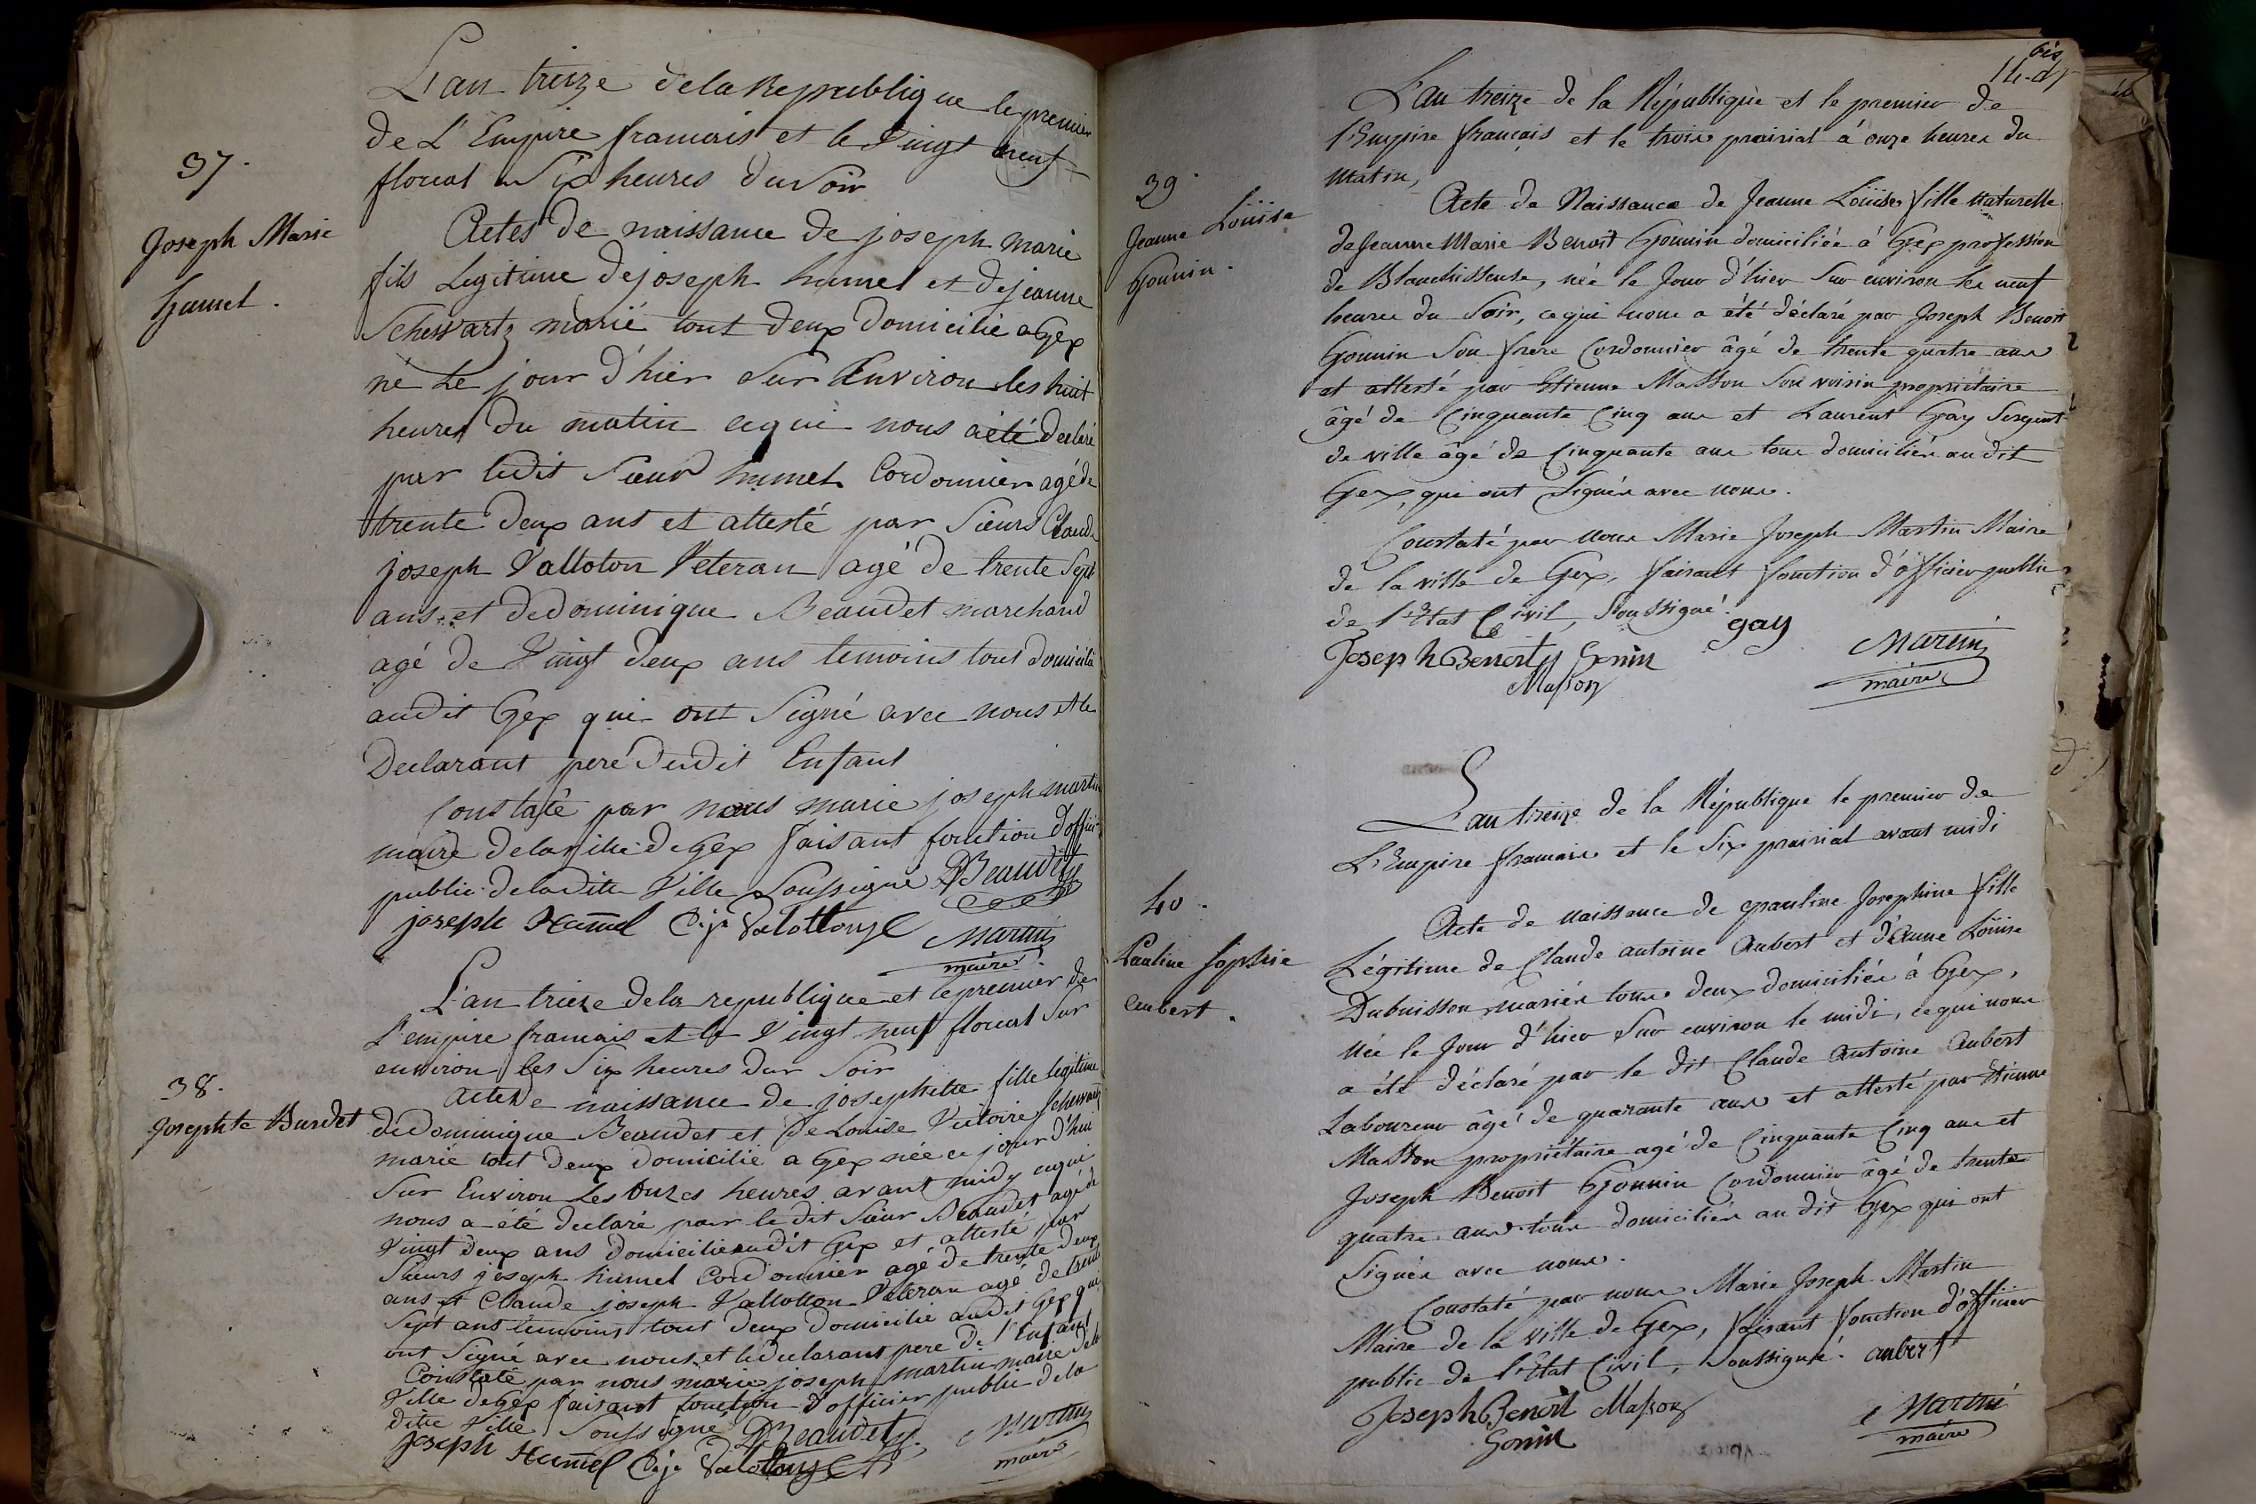 37.
Joseph Marie
humel.
L'an treize de la Republique le premier
de L'Empire francais et le Vingt neuf
floreal a Six heures du Soir
Actes de naissance de joseph marie
fils Legitime de joseph humel et de jeanne
Schewartz marié tout deux domicilié a Gex
né Le jour d'hier Sur Environ les huit
heures du matin ce qui nous a été declaré
par ledit Sieur humel Cordonnier agé de
trente deux ans et attesté par Sieurs Claude
joseph Valloton Veteran agé de trente Sept
ans et de dominique Beaudet marchand
agé de Vingt deux ans temoins tout domicilié
audit Gex qui ont Signé avec nous et le
Declarant pere dudit Enfant
Constaté par nous marie joseph martin
maire de la ville de Gex faisant fonction d'officier
public de la dite Ville Soussigné DBeaudet
joseph Humel C. j. Valottony
Martin
maire
38.
Josephte Burdet
L'an trieze de la republique et le premier de
L'empire francais et le Vingt neuf floreal Sur
environ les Six heures dur Soir
Acte de naissance de josephette fille legitime
de Dominique Beaudet et de Louise Victoire Schewartz
marié tout deux domicilié a Gex née ce jour d'hui
Sur Environ Les Onzes heures avant midy ce qui
nous a été declaré par le dit Sieur Beaudet agé de
Vingt deux ans domicilié audit Gex et attesté par
Sieurs joseph humel Cordonnier agé de trente deux
ans et Claude joseph Vallotton Veteran agé de trente
Sept ans temoins tout deux domicilié audit Gex qui
ont Signé avec nous et le declarant pere de l'Enfant
Constaté par nous marie joseph martin maire de la
Ville de Gex faisant fonction d'officier public de la
dite Ville Soussigné DBeaudet
Joseph Humel C. j. Valottony
Martin
maire
bis
39.
Jeanne Loüise
Gonnin.
L'an treize de la République et le premier de
l'Empire français et le trois prairial à onze heures du
Matin,
Acte de Naissance de Jeanne Loüise, fille Naturelle
de Jeanne Marie Benoit Gonnin domiciliée à Gex profession
de Blanchisseuse, née le Jour d'hier Sur environ les neuf
heures du Soir, ce qui nous a été déclaré par Joseph Benoit
Gonnin Son frere Cordonnier âgé de trente quatre ans
et attesté par Etienne Masson Son voisin propriétaire
âgé de Cinquante Cinq ans et Laurent Gay Sergent
de ville âgé de Cinquante ans tous domiciliés au dit
Gex, qui ont Signés avec nous.
Constaté par Nous Marie Joseph Martin Maire
de la ville de Gex, faisant fonction d'officier public
de l'Etat Civil, Soussigné.
gay
Joseph Benoit Gonin
Masson
Martin
maire
40.
Pauline Sophie
aubert.
L'an treize de la République le premier de
L'Empire francais et le Six prairial avant midi
Acte de Naissance de pauline Josephine fille
Légitime de Claude antoine Aubert et d'Anne Loüise
Dubuisson mariés tous deux domiciliés à Gex,
Née le Jour d'hier Sur environ le midi, ce qui nous
a été déclaré par le dit Claude Antoine Aubert
Laboureur âgé de quarante ans et attesté par Etienne
Masson propriétaire agé de Cinquante Cinq ans et
Joseph Benoit Gonnin Cordonnier âgé de trente
quatre ans tous domiciliés au dit Gex qui ont
Signés avec nous.
Constaté par nous Marie Joseph Martin
Maire de la ville de Gex, faisant fonction d'officier
public de l'Etat Civil, Soussigné. aubert
Joseph Benoit Masson
Gonin
Martin
maire